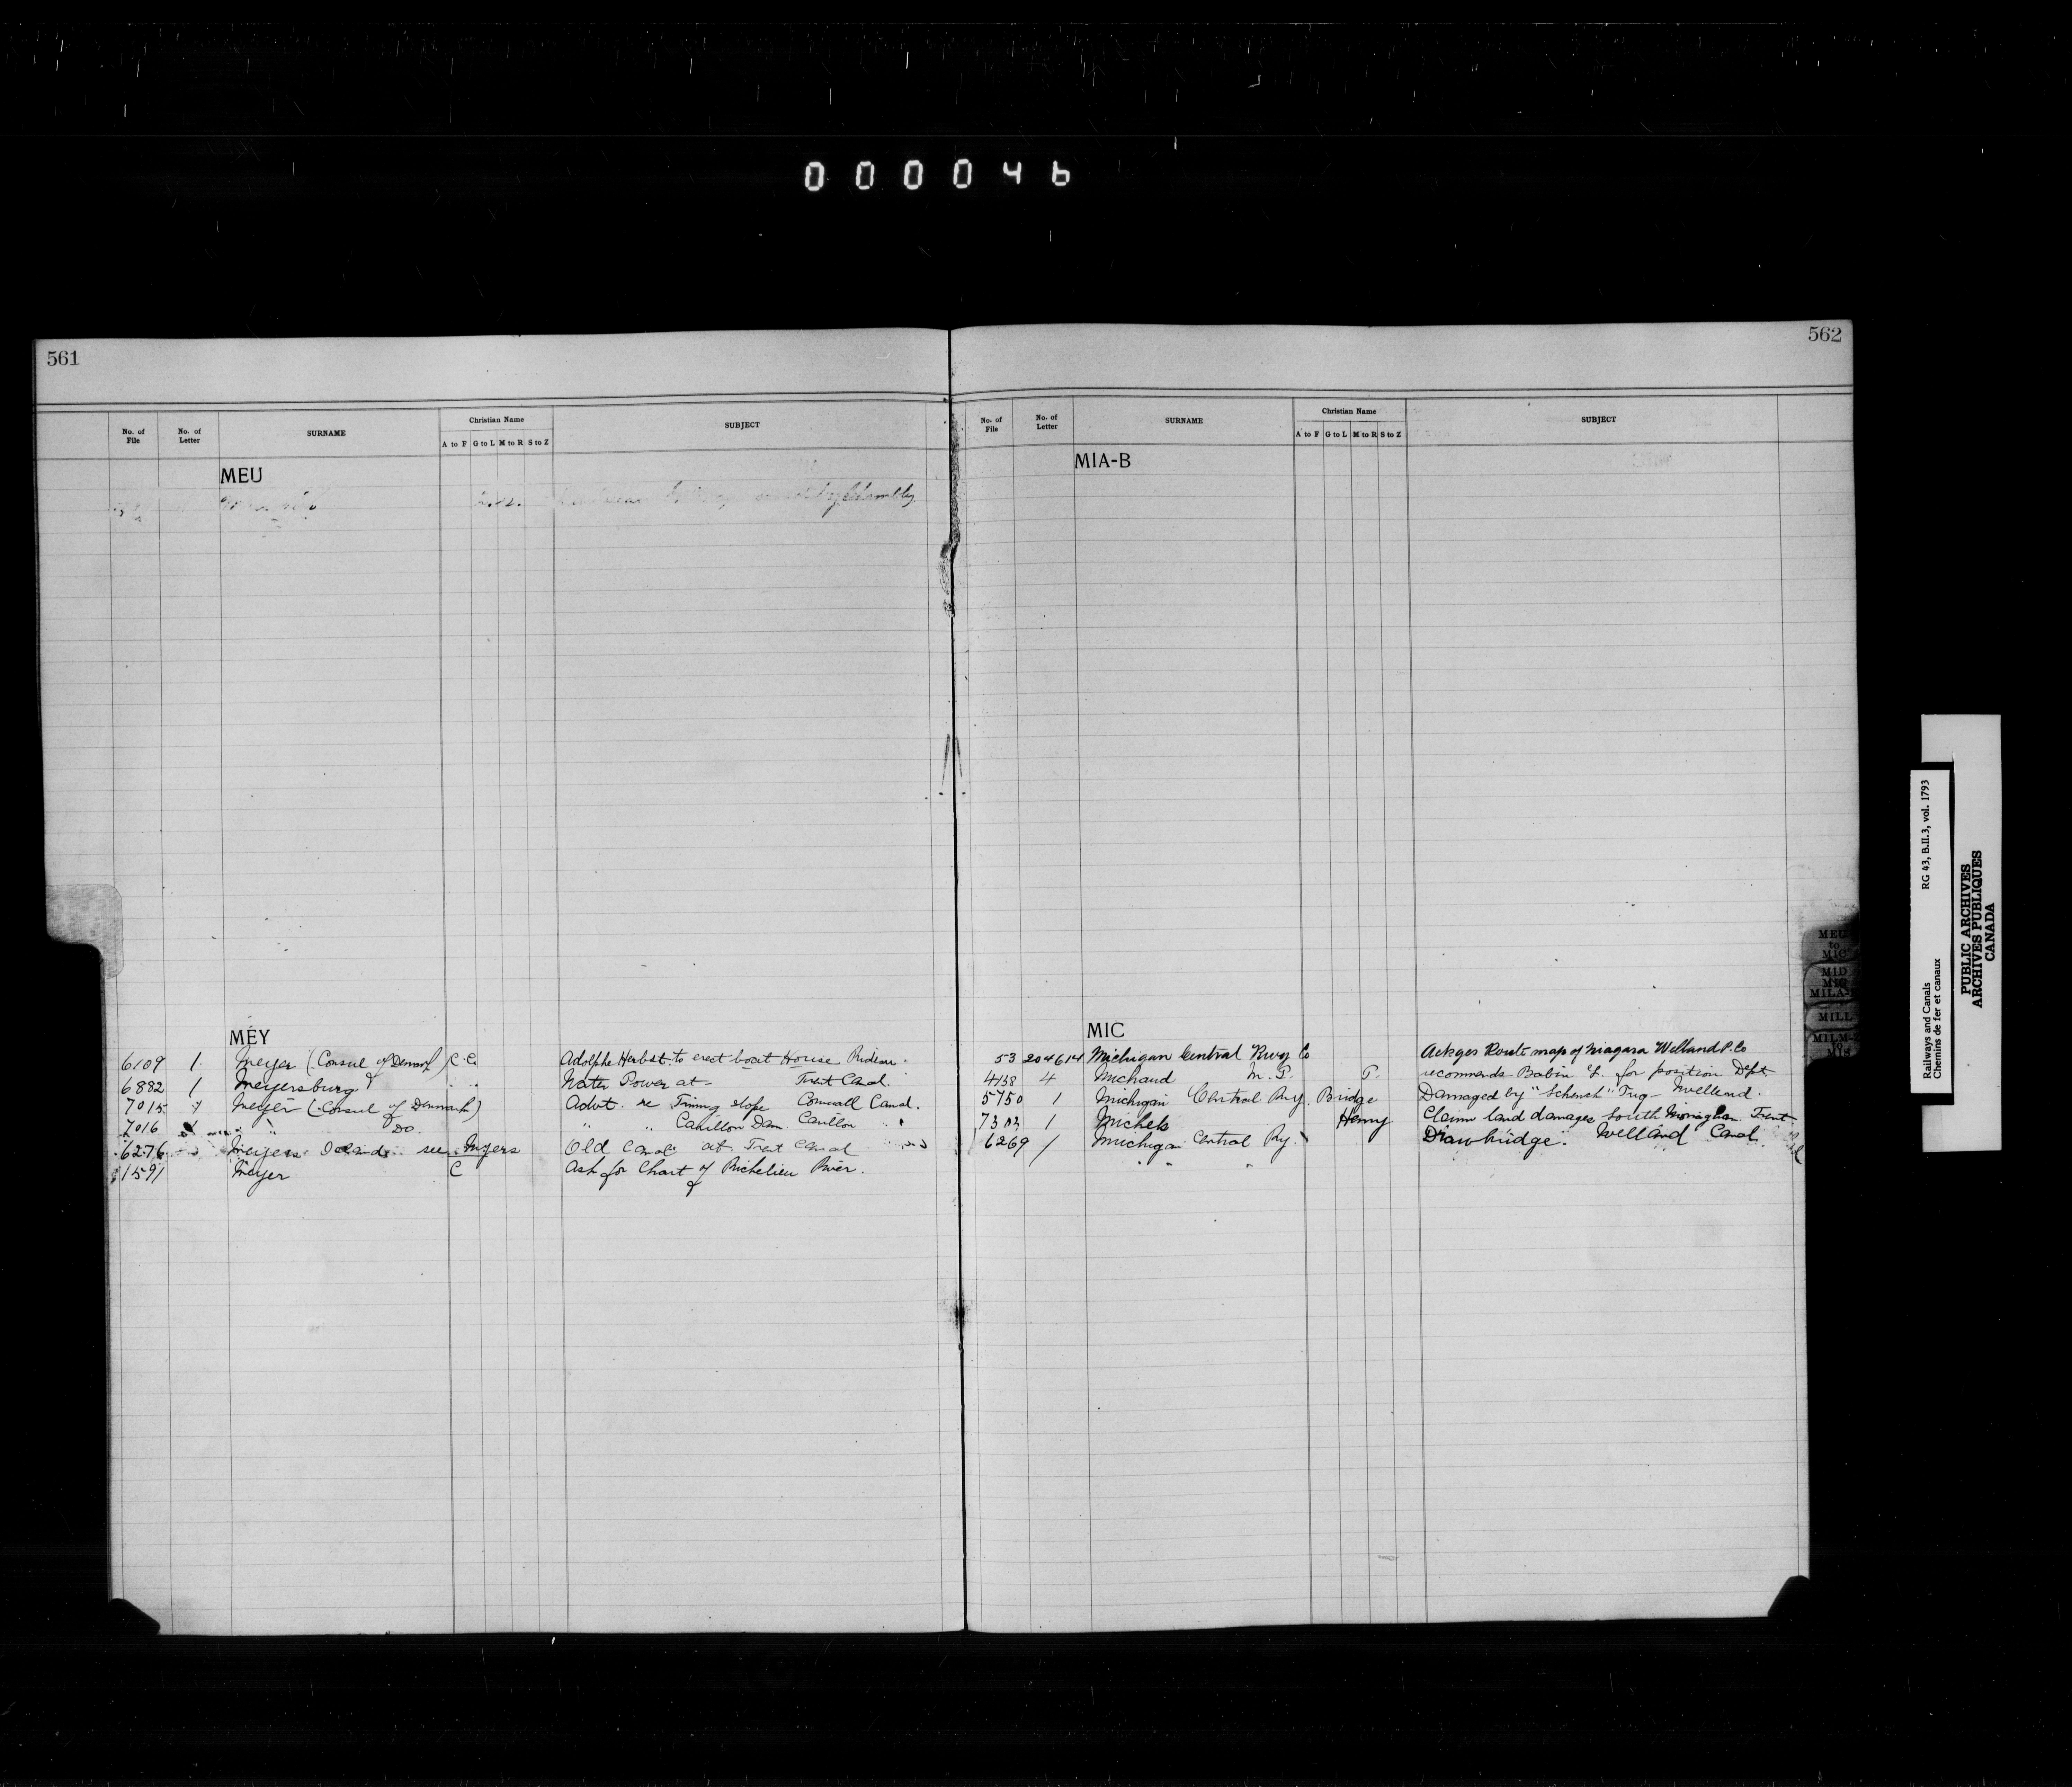 000046
561
No. of File No. of Letter SURNAME Christian Name A to F G to L M to R S to Z SUBJECT
MEU
MEY
6109 1 Meyer (Consul of Denmark) C.C. Adolphe Herbst to erect boat House Rideau
6882 1 Meyersburg Water Power at Trent Canal.
7015 1 Meyer (Consul of Denmark) Advt. re Timing slope Cornwall Canal.
7016 Do. " " Carillon Dam Carillon "
6276 Meyers Island see Myers Old Canal at Trent Canal
1591 Meyer C Ask for Chart of Richelieu River.
562
No. of File No. of Letter SURNAME Christian Name A to F G to L M to R S to Z SUBJECT
MIA-B
MIC
53 204614 Michigan Central Rwy Co Ackges Route map of Niagara Welland P. Co
4138 4 Michaud M.P. P. recommends Babin for position Dept
5750 1 Michigan Central Ry. Bridge Damaged by "Schenck" Tug Welland.
7303 1 Michels Henry Claim land damages South Monaghan Trent
6269 1 Michigan Central Ry. Drawbridge. Welland Canal.
" " "
MEU to MIC
MID MIG MILA-
MILL
MILM- to MIS
Railways and Canals RG 43, B.II.3, vol. 1793
Chemins de fer et canaux
PUBLIC ARCHIVES
ARCHIVES PUBLIQUES
CANADA